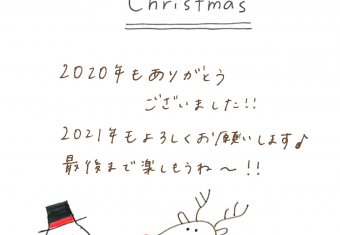 Christmas
2020年もありがとう
ございました!!
2021年もよろしくお願いします♪
最後まで楽しもうね〜!!